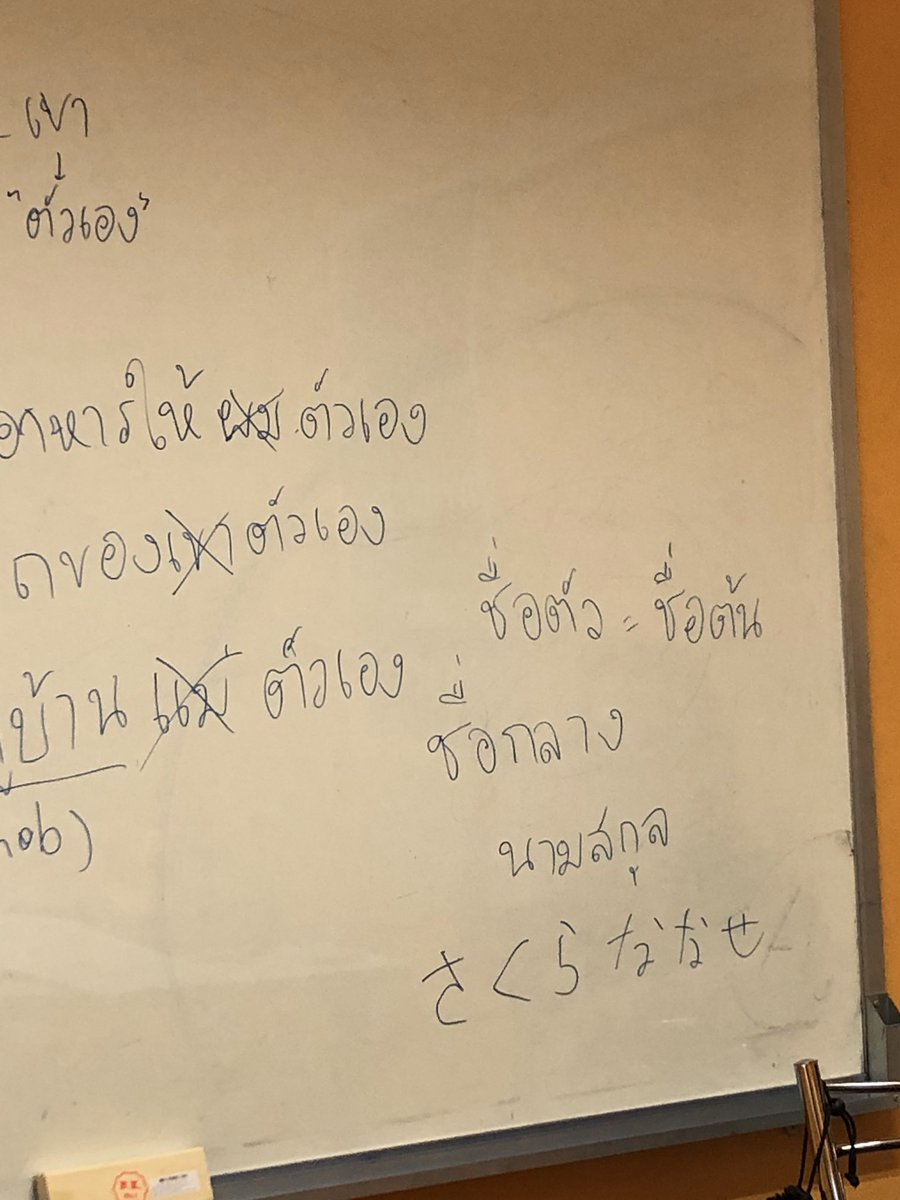 เขา
"ตัวเอง"
อาหารให้ ผม ตัวเอง
ถของเขาตัวเอง
บ้าน แม่ ตัวเอง
ชื่อตัว = ชื่อต้น
ชื่อกลาง
นามสกุล
さくら ななせ